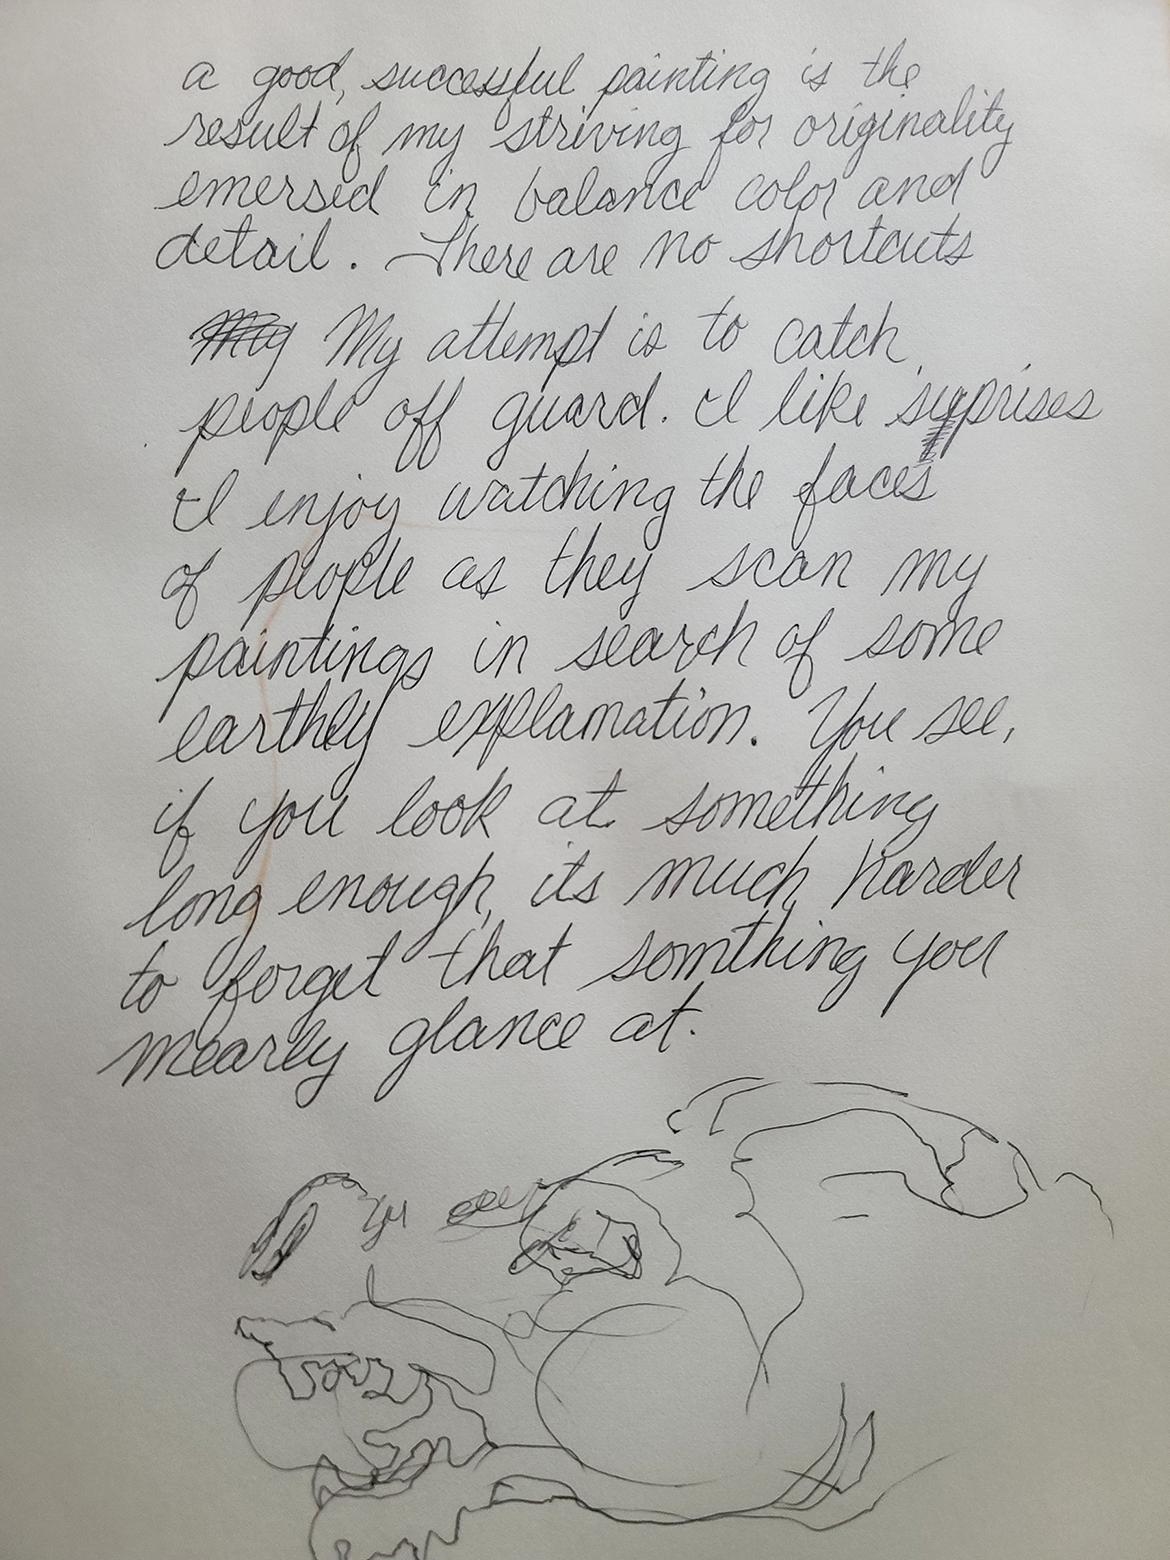 a good, successful painting is the
result of my striving for originality
emersed in balance color and
detail. There are no shortcuts
My My attempt is to catch
people off guard. I like surprises
I enjoy watching the faces
of people as they scan my
paintings in search of some
earthly explanation. You see,
if you look at something
long enough, its much harder
to forget that somthing you
mearly glance at.